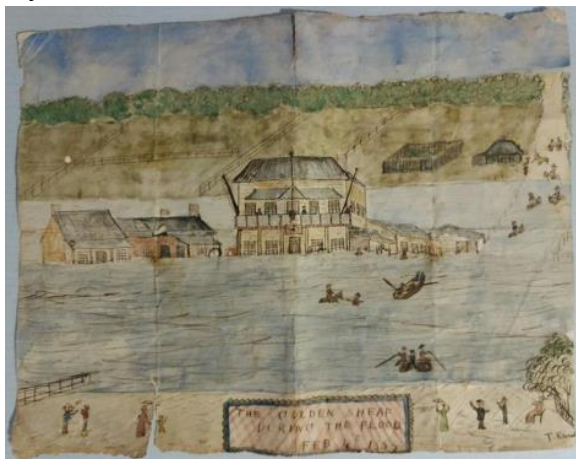 THE GOLDEN SHEAF
DURING THE FLOOD
FEB
T.